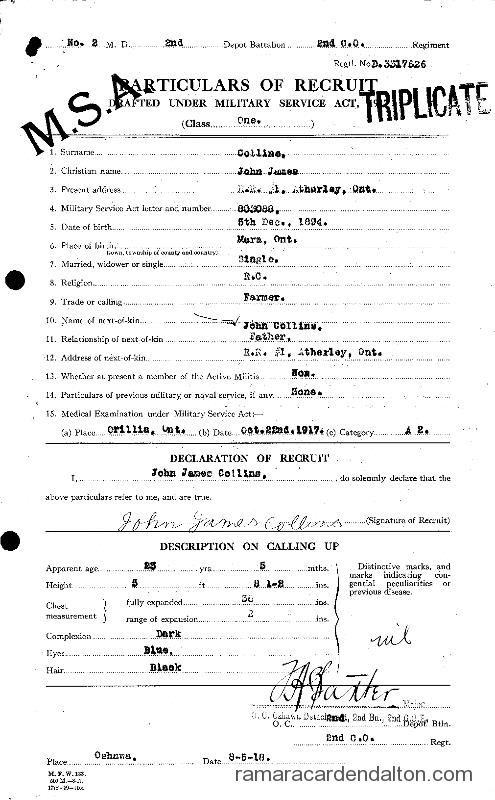 No. 2 M. D. 2nd Depot Battalion 2nd C.O. Regiment
Regtl. No D.3317526
M.S.A.
PARTICULARS OF RECRUIT
DRAFTED UNDER MILITARY SERVICE ACT,
TRIPLICATE
(Class One. )
1. Surname Collins,
2. Christian name John James
3. Present address R.R. #1, Atherley, Ont.
4. Military Service Act letter and number 803088,
5. Date of birth 5th Dec., 1894.
6. Place of birth Mara, Ont.
(town, township of county and country)
7. Married, widower or single Single.
8. Religion R.C.
9. Trade or calling Farmer.
10. Name of next-of-kin John Collins,
11. Relationship of next-of-kin Father.
12. Address of next-of-kin R.R. #1, Atherley, Ont.
13. Whether at present a member of the Active Militia Non.
14. Particulars of previous military or naval service, if any None.
15. Medical Examination under Military Service Act:—
(a) Place Orillia, Ont. (b) Date Oct.22nd.1917. (c) Category A 2.
DECLARATION OF RECRUIT
I, John James Collins, do solemnly declare that the
above particulars refer to me, and are true.
John James Collins (Signature of Recruit)
DESCRIPTION ON CALLING UP
Apparent age 23 yrs 5 mths.
Height 5 ft 8 1-2 ins.
Chest measurement fully expanded 36 ins.
range of expansion 2 ins.
Complexion Dark
Eyes Blue,
Hair Black
Distinctive marks, and
marks indicating con-
genital peculiarities or
previous disease.
nil
O. C. 2nd, 2nd Bn., 2nd C.O.R. Depot Btln.
2nd C.O. Regt.
Place Oshawa. Date 8-5-18.
M. F. W. 133.
ramaracardendalton.com